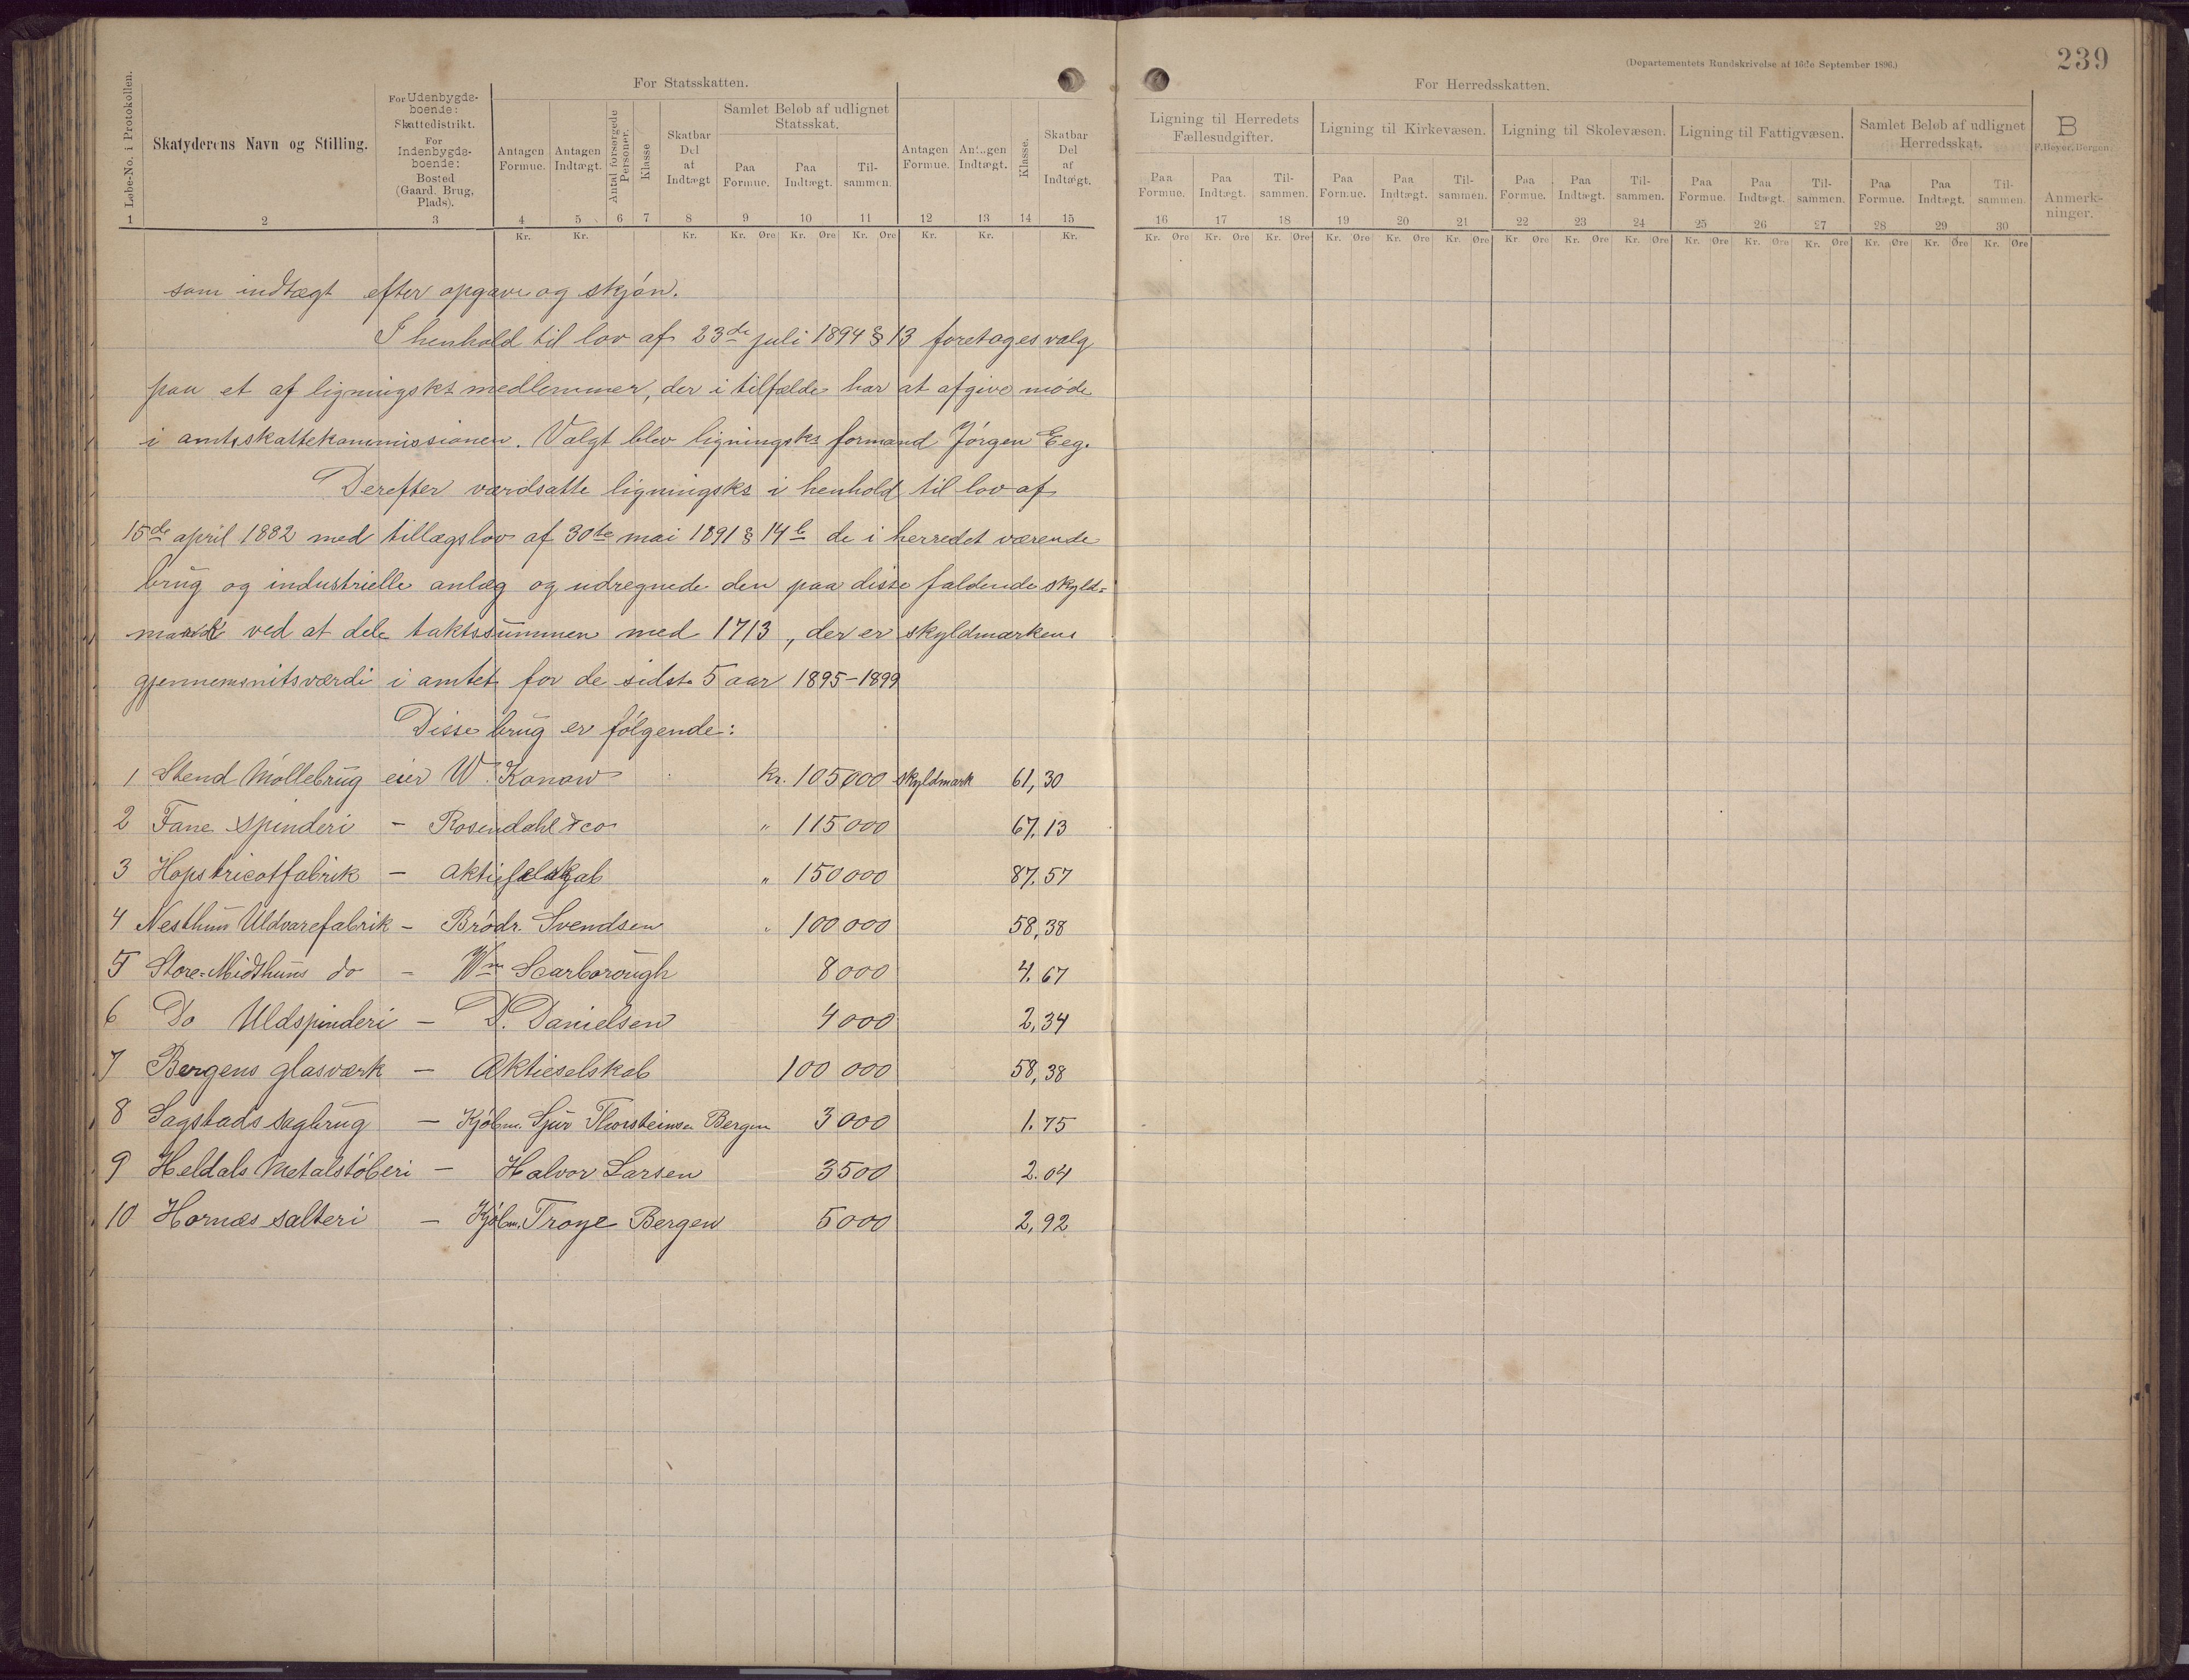 239
(Departementets Rundskrivelse af 16de September 1896.)
Løbe-No. i Protokollen.
Skatyderens Navn og Stilling.
For Udenbygds-
boende:
Skattedistrikt.
For
Indenbygds-
boende:
Bosted
(Gaard. Brug,
Plads).
For Statsskatten.
Antagen
Formue.
Antagen
Indtægt.
Antal forsørgede
Personer.
Klasse
Skatbar
Del
af
Indtægt
Samlet Beløb af udlignet
Statsskat.
Paa
Formue.
Paa
Indtægt.
Til-
sammen.
Antagen
Formue.
Antagen
Indtægt.
Klasse.
Skatbar
Del
af
Indtægt.
For Herredsskatten.
Ligning til Herredets
Fællesudgifter.
Ligning til Kirkevæsen.
Ligning til Skolevæsen.
Ligning til Fattigvæsen.
Samlet Beløb af udlignet
Herredsskat.
B
F. Beyer, Bergen.
Paa Formue. Paa Indtægt. Til-sammen. Paa Formue. Paa Indtægt. Til-sammen. Paa Formue. Paa Indtægt. Til-sammen. Paa Formue. Paa Indtægt. Til-sammen. Paa Formue. Paa Indtægt. Til-sammen.
Anmerk-
ninger.
1 2 3 4 5 6 7 8 9 10 11 12 13 14 15 16 17 18 19 20 21 22 23 24 25 26 27 28 29 30
Kr. Kr. Kr. Kr. Øre Kr. Øre Kr. Øre Kr. Kr. Kr. Kr. Øre Kr. Øre Kr. Øre Kr. Øre Kr. Øre Kr. Øre Kr. Øre Kr. Øre Kr. Øre Kr. Øre Kr. Øre Kr. Øre Kr. Øre Kr. Øre Kr. Øre
som indtægt efter opgave og skjøn.
I henhold til lov af 23de juli 1894 § 13 foretages valg
paa et af ligningsks medlemmer, der i tilfælde har at afgive møde
i amtsskattekommissionen. Valgt blev ligningsks formand Jørgen Eeg.
Derefter værdsatte ligningsks i henhold til lov af
15de april 1882 med tillægslov af 30te mai 1891 § 14 b de i herredet værende
brug og industrielle anlæg og udregnede den paa disse faldende skyld=
mark ved at dele takstsummen med 1713, der er skyldmarkens
gjennemsnitsværdi i amtet for de sidste 5 aar 1895-1899
Disse brug er følgende:
1 Stend Møllebrug eier W. Konow Kr. 105000 skyldmark 61,30
2 Fane spinderi - Rosendahl & co " 115000 67,13
3 Hops tricotfabrik - aktieselskab " 150000 87,57
4 Nesthun Uldvarefabrik - Brødr. Svendsen " 100000 58,38
5 Store-Midthuns do - Wm Scarborough 8000 4,67
6 Do Uldspinderi - D. Danielsen 4000 2,34
7 Bergens glasværk - Aktieselskab 100 000 58,38
8 Sagstads sagbrug - Kjøbm. Sjur Thorsteinsen Bergen 3000 1.75
9 Heldals Metalstøberi - Halvor Larsen 3500 2.04
10 Hornæs salteri - Kjøbm. Troye Bergen 5000 2,92